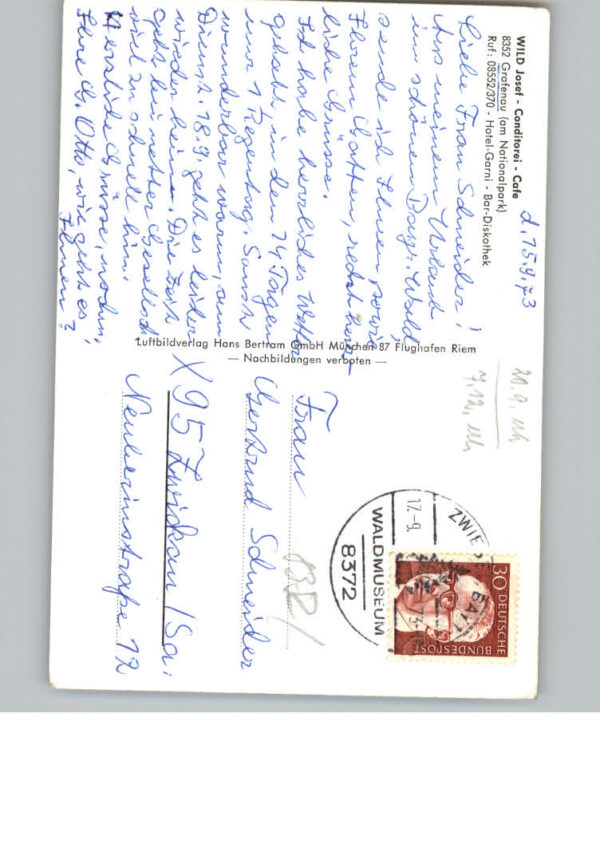 WILD Josef - Conditorei - Cafe
8352 Grafenau (am Nationalpark)
Ruf: 08552/370 - Hotel-Garni - Bar-Diskothek
d. 15.9.73
Liebe Frau Schneider!
Aus meinem Urlaub
im schönen Bayr. Wald
sende ich Ihnen, sowie
Ihrem Gatten, recht herz-
liche Grüsse.
Ich habe herrliches Wetter
gehabt, in den 14 Tagen
nur 1 Regentag. Sonst
wunderbar warm, am
Dienst. 18.9. geht es leider
wieder heim. Die Zeit
geht bei netter Gesellsch.
viel zu schnell hin.
Herzliche Grüsse, nochm,
Ihre G. Otto, wie geht es
Ihnen?
Luftbildverlag Hans Bertram GmbH München 87 Flughafen Riem
— Nachbildungen verboten —
21.9.
7.12.
Frau
Gertrud Schneider
X 95 Zwickau /Sa.
12
13D/
ZWIE
17.-9.
WALDMUSEUM
8372
30
DEUTSCHE
BUNDESPOST